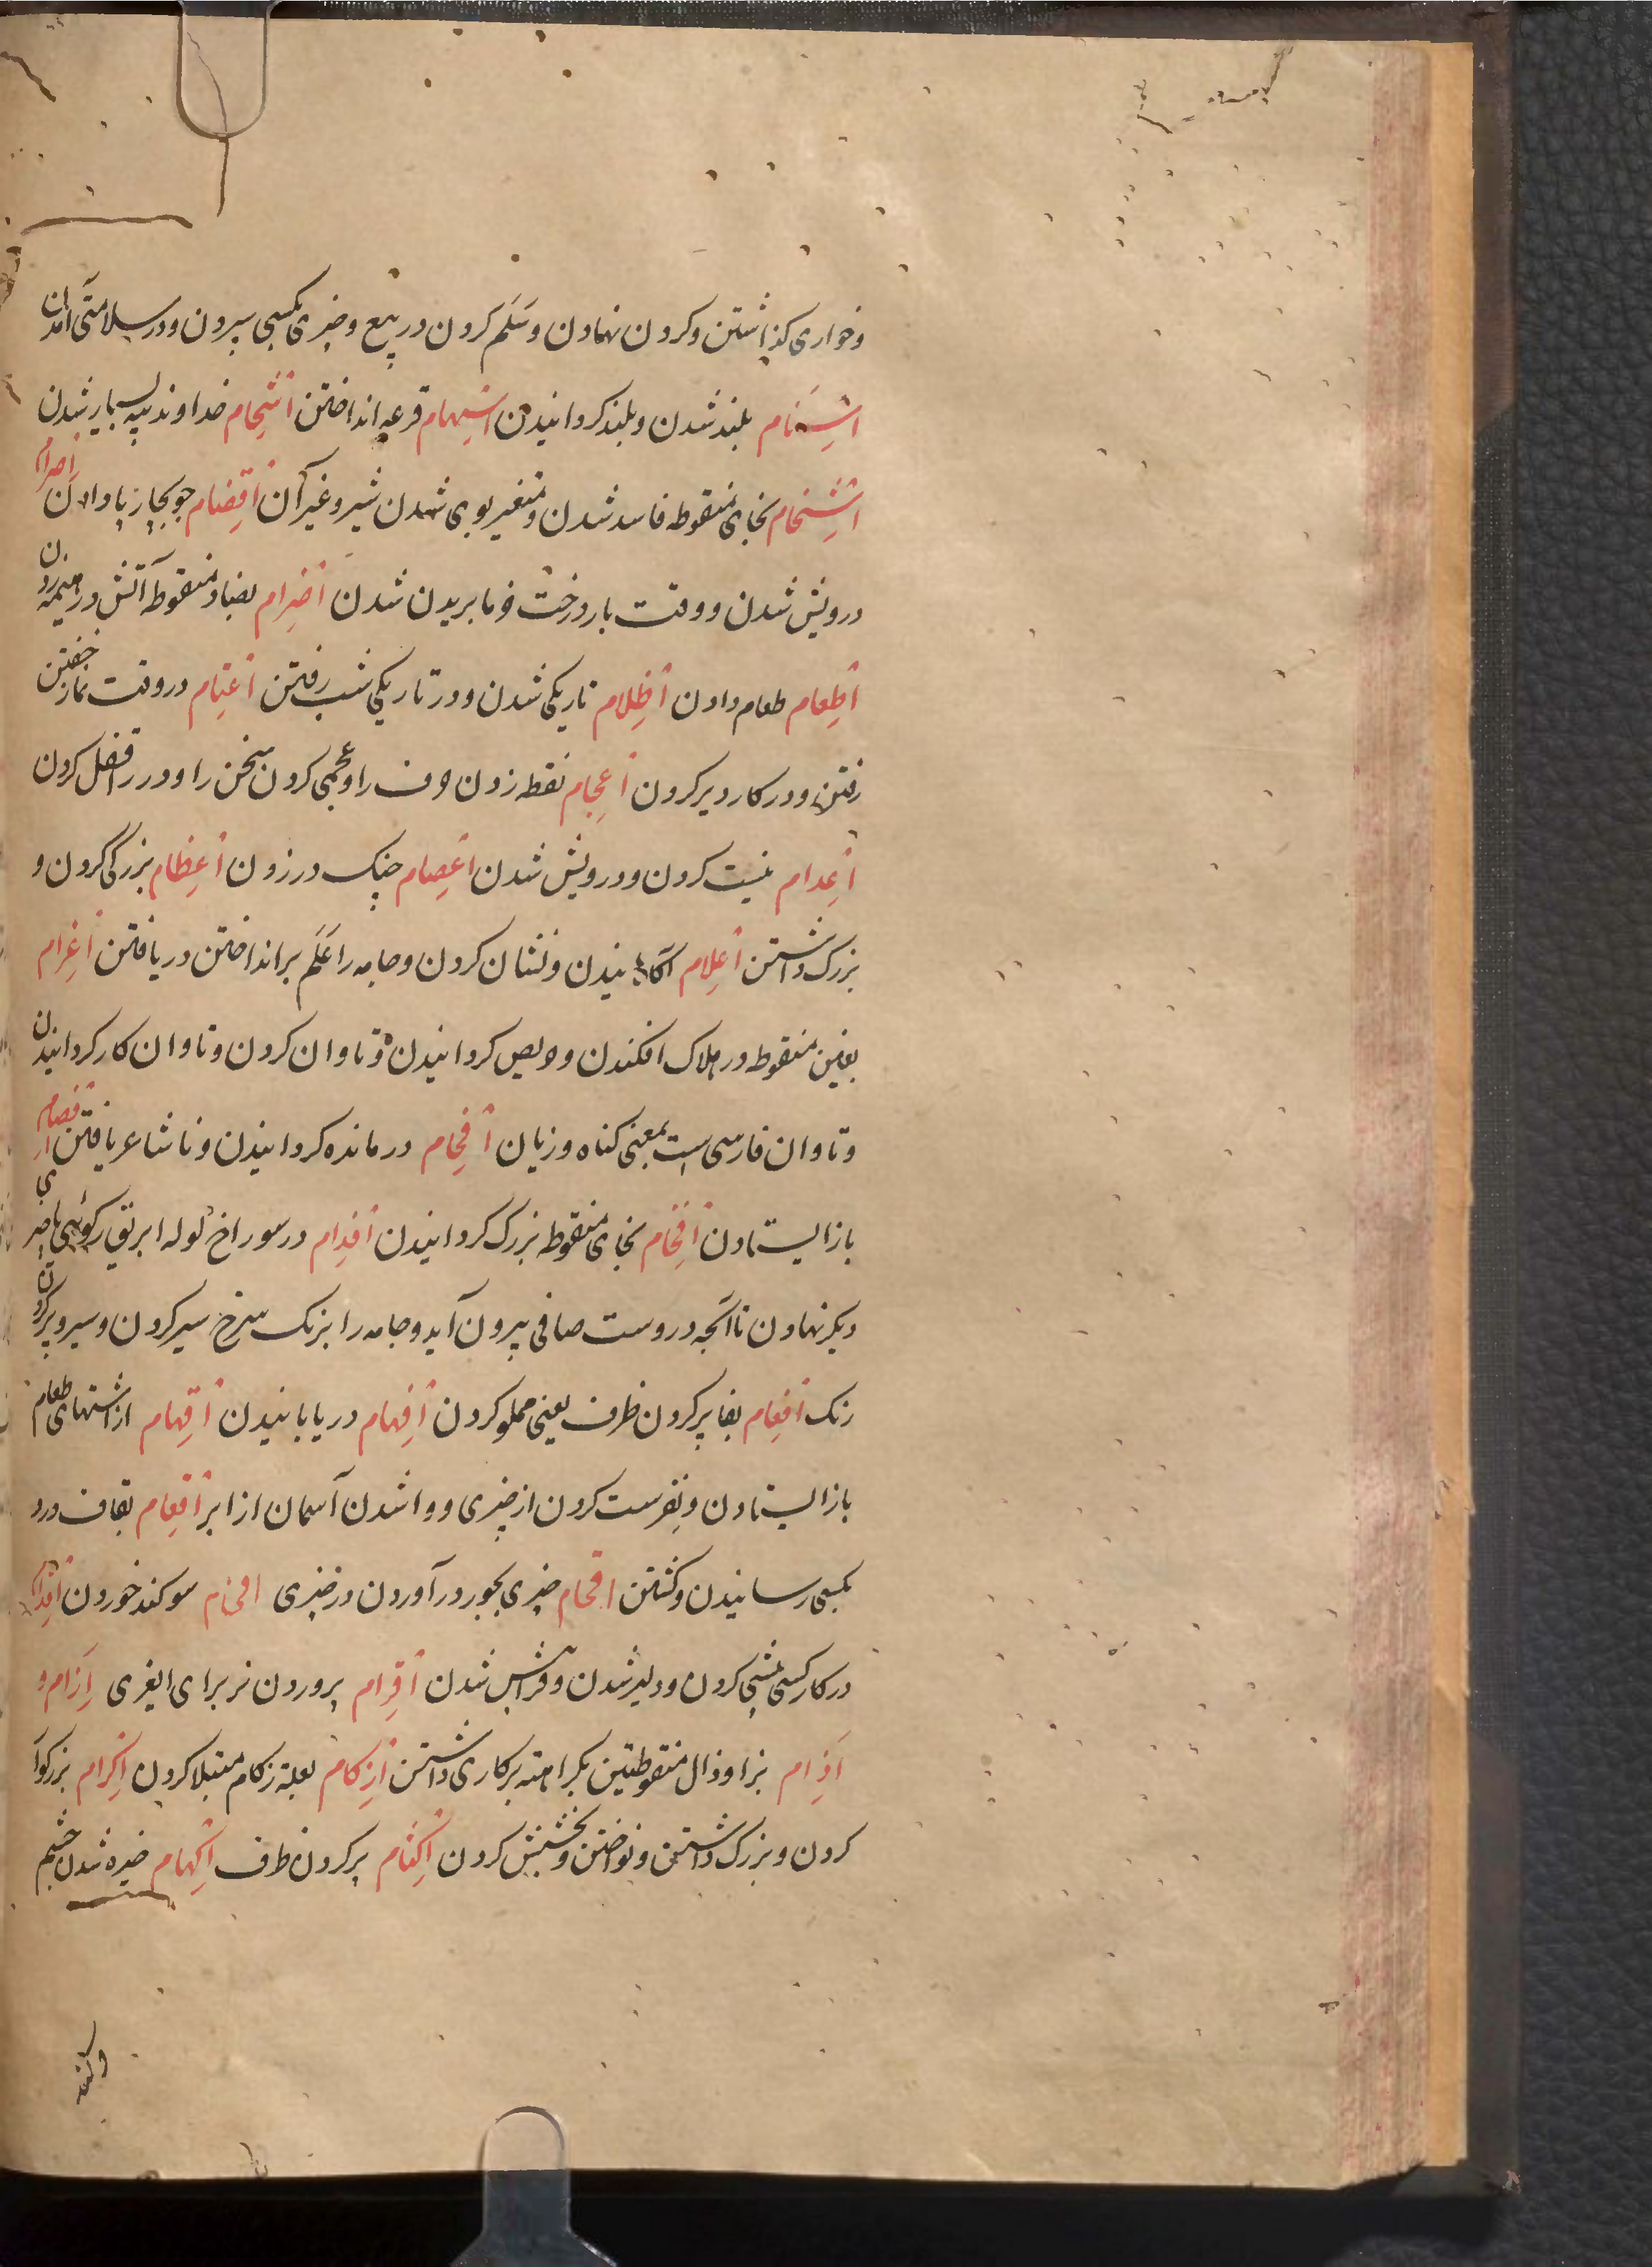 وخواری کذاشتن وکردن نهادن وسَلَم کردن در بیع وچیزی بکسی سپردن ودر سلامتی آمدن
اسِنام بلند شدن وبلند کردانیدن اسِهام قرعه انداختن اَشِحام خداوند پیه بسیار شدن
اشِخام بخای منقوطه فاسد شدن ومتغیر بوی شدن شیر وغیر آن اَقِضام جو بچارپا دادن اِصرام
درویش شدن ووقت بار درخت خرما بریدن شدن اَضِرام بضاد منقوطه آتش در هیمه زدن
اَطِعام طعام دادن اَظِلام تاریک شدن ودر تاریکی شب رفتن اَعتِام در وقت نماز خفتن
رفتن ودر کار دیر کردن اَعِجام نقطه زدن حرف را وعجمی کردن سخن را ودر را قفل کردن
اَعِدام نیست کردن ودرویش شدن اَعِصام چنک در زدن اَعِظام بزرک کردن و
بزرک داشتن اَعِلام آکاهانیدن ونشان کردن وجامه را عَلَم بر انداختن دریافتن اَغِرام
بغین منقوطه در هلاک افکندن وحریص کردانیدن وتاوان کردن وتاوان کار کردانیدن
وتاوان فارسی است بمعنی کناه وزیان اَفِحام درمانده کردانیدن وناشاعر یافتن اَفِصام
باز ایستادن اَفِخام بخای منقوطه بزرک کردانیدن اَفِدام در سوراخ لوله ابریق رکوئی یا چیزی
دیکر نهادن تا آنچه دروست صافی بیرون آید وجامه را برنک سرخ سیر کردن وسیر وپر کردن
رنک اَفِعام بفا پر کردن ظرف یعنی مملو کردن اَفِهام دریابانیدن اَقِهام از اشتهای طعام
باز ایستادن ونفرست کردن از چیزی ووا شدن آسمان از ابر اَقِعام بقاف درد
بکسی رسانیدن وکشتن اقحام چیزی بجور در آوردن در چیزی سوکند خوردن اَقِدام
در کار کسی پیشی کردن ودلیر شدن وفراپیش شدن اَقِرام پروردن نر برای ایغری اِزام و
اَذِام بزا وذال منقوطتین بکراهته برکاری داشتن اَزِکام بعلة زکام مبتلا کردن اَکِرام بزرکوار
کردن وبزرک داشتن ونواختن وبخشش کردن اَکِثام پر کردن ظرف اَکِهام خیره شدن چشم
وکند